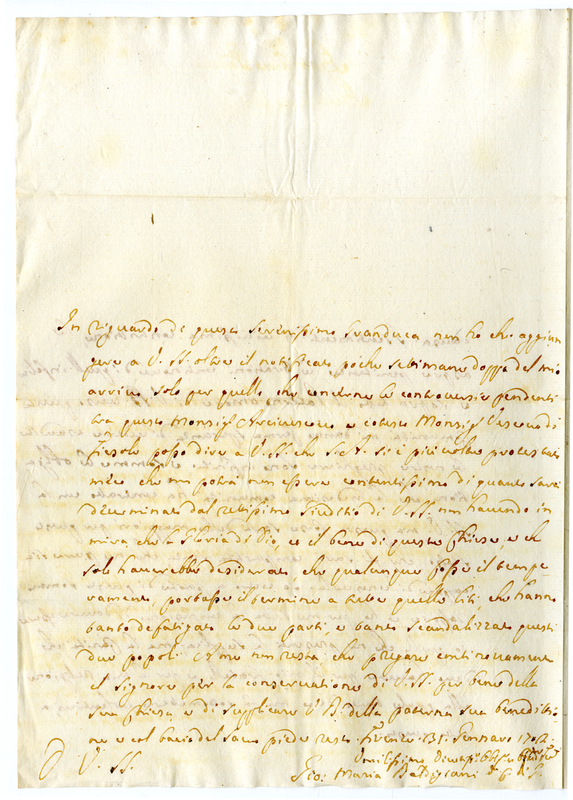 In riguardo di questo Serenissimo Granduca non ho che aggiun
gere a V. SS. oltre il notificato poche settimane doppo del mio
arrivo solo per quello che concerne le controversie pendenti
tra questo Monsig.r Arcivescovo e cotesto Monsig.r Vescovo di
Fiesole posso dire a V. SS. che S. A. si è più volte protestato
meco che non potrà non essere contentissimo di quanto sarà
determinato dal rettissimo Giuditio di V. SS. non havendo in
mira che la Gloria di Dio, et il bene di questa Chiesa e che
solo haverebbe desiderato che qualunque fosse il tempe
ramento, portasse il termine a tutte quelle liti, che hanno
tanto defatigato le due parti, e tanto scandalizzato questi
due popoli. A me non resta che pregare continovamente
il Signore per la conservatione di V. SS. per bene della
sua Chiesa, e di supplicare V. B. della paterna sua beneditio
ne e col bacio del Sacro piede resto. Firenze 31 Gennaro 1702.
D V. SS.
Umilissimo
Gio: Maria Baldigiani d. C. di G.